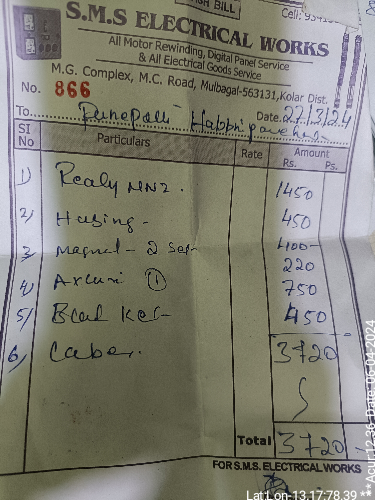 SH BILL
Cell: 9341
S.M.S ELECTRICAL WORKS
All Motor Rewinding, Digital Panel Service
& All Electrical Goods Service
M.G. Complex, M.C. Road, Mulbagal-563131, Kolar Dist.
No. 866
Date. 27/3/24
To
SI No Particulars Rate Amount Rs. Ps.
1) Realy MN2. 1450
2) Husing - 450
3 Magnut - 2 Set 400-
220
4) ① 750
5) 450
6) Caber. 3720
Total 3720 -
FOR S.M.S. ELECTRICAL WORKS
Lat Lon-13,17:78.39 **Acur 12.36 Date: 06-04-2024